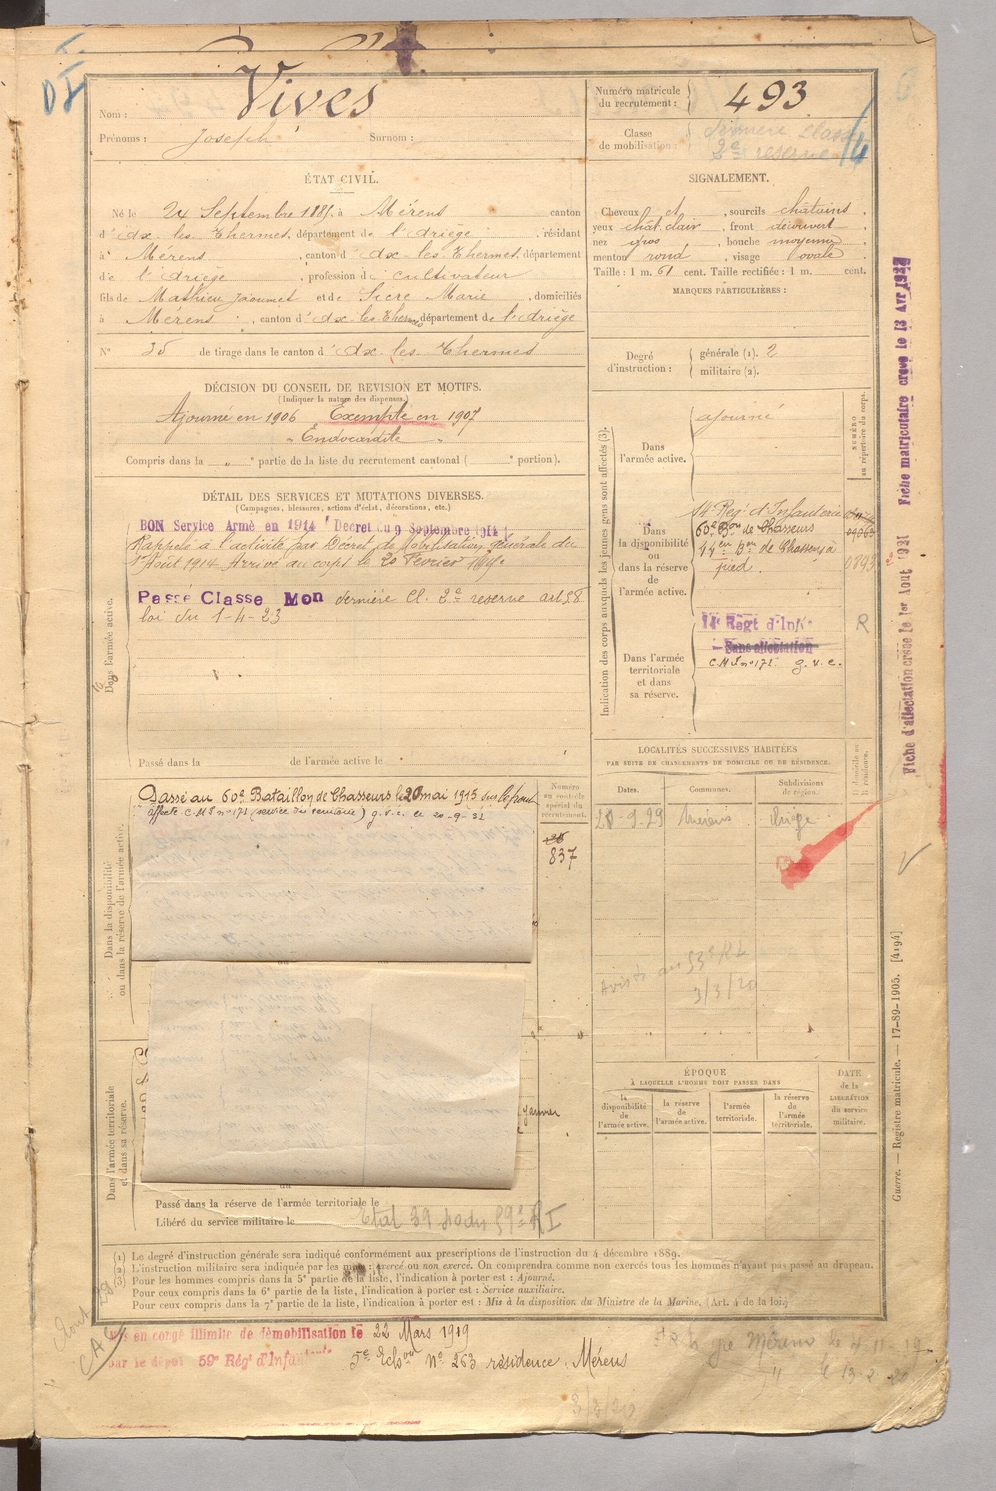 Nom : Vives
Prénoms : Joseph Surnom :
Numéro matricule du recrutement : 493
Classe de mobilisation : dernière classe
2e reserve
ÉTAT CIVIL.
Né le 24 Septembre 1885, à Mérens canton
d'Ax les Thermes, département de l'Ariège, résidant
à Mérens, canton d'Ax les Thermes, département
de l'Ariège, profession de cultivateur
fils de Mathieu Jaoumet et de Sicre Marie, domiciliés
à Mérens, canton d'Ax les Thermes département de l'Ariège
N° 35 de tirage dans le canton d'Ax les Thermes
SIGNALEMENT.
Cheveux et, sourcils châtains,
yeux chât. clair, front découvert,
nez gros, bouche moyenne,
menton rond, visage ovale.
Taille : 1 m. 61 cent. Taille rectifiée : 1 m. cent.
MARQUES PARTICULIÈRES :
Degré d'instruction : générale (1). 2
militaire (2).
DÉCISION DU CONSEIL DE REVISION ET MOTIFS.
(Indiquer la nature des dispenses.)
Ajourné en 1906 Exempté en 1907
"Endocardite"
Compris dans la " partie de la liste du recrutement cantonal ( portion).
DÉTAIL DES SERVICES ET MUTATIONS DIVERSES.
(Campagnes, blessures, actions d'éclat, décorations, etc.)
BON Service Armé en 1914 (Decret du 9 Septembre 1914)
Rappelé à l'activité par Décret de Mobilisation générale du
1er Août 1914. Arrivé au corps le 20 Février
Passé Classe Mon dernière Cl. 2e reserve art 58
loi du 1-4-23
Dans l'armée active.
Passé dans la de l'armée active le
Indication des corps auxquels les jeunes gens sont affectés (3).
Dans l'armée active.
ajourné
NUMÉRO au répertoire du corps.
Dans la disponibilité ou dans la réserve de l'armée active.
14e Reg. d'Infanterie
60e Bon de Chasseurs
44e Bon de Chasseurs à
pied.
Dans l'armée territoriale et dans sa réserve.
14e Régt d'Inf.
Sans affectation
C.M.I n° 171 g.v.c.
R
LOCALITÉS SUCCESSIVES HABITÉES
PAR SUITE DE CHANGEMENTS DE DOMICILE OU DE RÉSIDENCE.
Dates. Communes. Subdivisions de région. Domicile ou résidence.
20-9-29 Mérens Ariège
Dans la disponibilité ou dans la réserve de l'armée active.
Passé au 60e Bataillon de Chasseurs le 20 mai 1915 sur le front
affecté C.M.I n° 171 (service du territoire) g.v.c. le 20-9-32
Numéro au contrôle spécial du recrutement.
837
3/3/20
janvier
Dans l'armée territoriale et dans sa réserve.
ÉPOQUE
À LAQUELLE L'HOMME DOIT PASSER DANS
la disponibilité de l'armée active. la réserve de l'armée active. l'armée territoriale. la réserve de l'armée territoriale.
DATE de la LIBÉRATION du service militaire.
Passé dans la réserve de l'armée territoriale le
Libéré du service militaire le
Etat 39 59e RI
(1) Le degré d'instruction générale sera indiqué conformément aux prescriptions de l'instruction du 4 décembre 1889.
(2) L'instruction militaire sera indiquée par les mots : exercé ou non exercé. On comprendra comme non exercés tous les hommes n'ayant pas passé au drapeau.
(3) Pour les hommes compris dans la 5e partie de la liste, l'indication à porter est : Ajourné.
Pour ceux compris dans la 6e partie de la liste, l'indication à porter est : Service auxiliaire.
Pour ceux compris dans la 7e partie de la liste, l'indication à porter est : Mis à la disposition du Ministre de la Marine, (Art. 4 de la loi.)
en congé illimité de démobilisation le 22 Mars 1919
par le dépôt 59e Rég' d'Infanterie 5e Echon N° 263 résidence : Mérens
3/3/20
Fiche d'affectation créée le 1er Aout 1921 Fiche matriculaire créée le 13 Avr 1927
Guerre. — Registre matricule. — 17-89-1905. [4194]